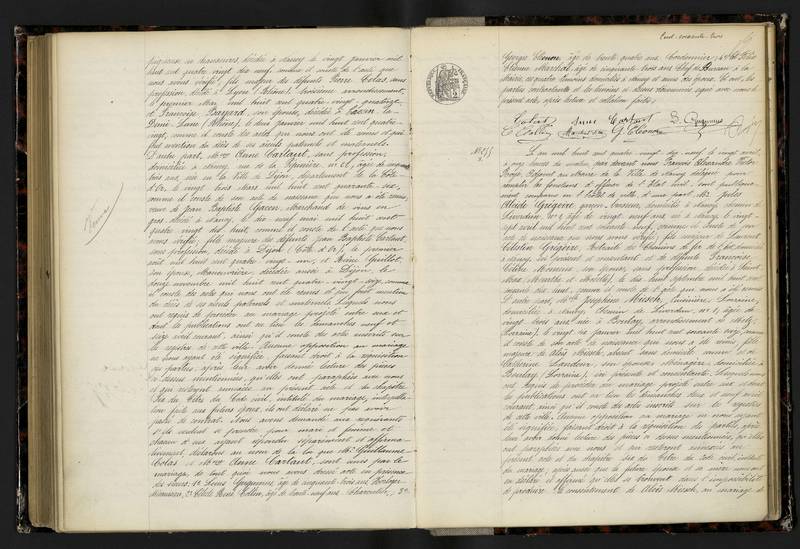 mil
huit cent quatre vingt dix neuf, comme il conste de l'acte que
nous avons vérifié; fils majeur des défunts Pierre Colas, sans
profession, décédé à Lyon (Rhône), troisième arrondissement,
le premier mai mil huit cent quatre-vingt-quatorze
et Françoise son épouse, décédée à
le deux janvier mil huit cent quatre-
vingt, comme il conste des actes qui nous ont été remis et qui
font mention du décès de ses aïeuls paternels et maternels.
D'autre part, Mme Anne Cartaut, sans profession,
domiciliée à Nancy, rue de la Pépinière, âgée de
trois ans, née en la Ville de Dijon, département de la Côte
d'Or, le vingt trois mars mil huit cent quarante-six,
comme il conste de son acte de naissance que nous a été remis
veuve de Jean Baptiste marchand de vins en
gros, décédé à Nancy, le dix neuf mai mil huit cent
quatre vingt dix huit, comme il conste de l'acte que nous
avons vérifié; fille majeure des défunts Jean Baptiste Cartaut,
sans profession, décédé à Dijon (Côte d'Or), le premier
août mil huit cent quatre vingt-un, et Reine Guillot,
son épouse, décédée aussi à Dijon, le
douze novembre mil huit cent quatre-vingt-onze, comme
il conste des actes qui nous ont été remis et qui font mention
du décès de ses aïeuls paternels et maternels. Lesquels nous
ont requis de procéder au mariage projeté entre eux et
dont les publications ont eu lieu les dimanches neuf et
seize avril courant, ainsi qu'il conste des actes inscrits sur
le registre de cette ville. Aucune opposition au mariage
ne nous ayant été signifiée, faisant droit à la réquisition
des parties, après leur avoir donné lecture des pièces
ci-dessus mentionnées, qu'elles ont paraphées avec nous
et qui resteront annexées au présent acte et du chapitre
six du Titre du Code civil, intitulé du mariage, interpellation
faite aux futurs époux, ils ont déclaré ne pas avoir
passé de contrat. Nous avons demandé aux requérants
s'ils veulent se prendre pour mari et femme et
chacun d'eux ayant répondu séparément et affirma-
tivement, déclarons au nom de la loi que Mr Guillaume
Colas et Mme Anne Cartaut, sont unis par le
mariage, de tout quoi nous avons dressé acte en présence
des sieurs, 1° Louis âgé de cinquante trois ans, Horloger
2° René Collin, âgé de trente-neuf ans, Charcutier, 3°
Georges Eléonore, âgé de trente quatre ans, Cordonnier; 4°
Etienne Marchal, âgé de cinquante trois ans, Chef de Bureau à la
Mairie, ces quatre témoins domiciliés à Nancy et amis des époux. Et ont, les
parties contractantes et les témoins ci-dessus dénommés signé avec nous le
présent acte, après lecture et collation faites.
Colas Anne Cartaut
Collin Marchal G. Eléonore
N° 255
L'an mil huit cent quatre-vingt dix neuf, le vingt avril,
à onze heures du matin, par devant nous François Alexandre Victor
Adjoint au Maire de la Ville de Nancy délégué pour
remplir les fonctions d'officier de l'état civil, sont publique-
ment comparus en l'hôtel de ville d'une part Mr Jules
Grégoire, garçon Brasseur, domicilié à Nancy, chemin de
âgé de vingt neuf ans, né à Nancy, le vingt-
sept avril mil huit cent soixante neuf, comme il conste de son
acte de naissance que nous avons vérifié; fils majeur de Laurent
Grégoire, Retraité des Chemins de fer de l'Est, domicilié
à Nancy, ici présent et consentant et de défunte Françoise
son épouse, sans profession, décédée à Saint
Max (Meurthe et Moselle), le dix huit septembre mil huit cent
D'autre part, Mlle Joséphine Misch, Cuisinière,
domiciliée à Nancy, Chemin de âgée de
vingt trois ans, née à Boulay, arrondissement de Metz,
(Lorraine), le vingt six janvier mil huit cent soixante seize, comme
il conste de son acte de naissance que nous a été remis; fille
majeure de Aloïs Misch, absent sans domicile connu et de
Catherine son épouse, Ménagère, domiciliée à
Boulay (Lorraine), ici présente et consentante. Lesquels nous
ont requis de procéder au mariage projeté entre eux et dont
les publications ont eu lieu les dimanches deux et neuf avril
courant, ainsi qu'il conste des actes inscrits sur le registre
de cette ville. Aucune opposition au mariage ne nous ayant
été signifiée, faisant droit à la réquisition des parties, après
leur avoir donné lecture des pièces ci-dessus mentionnées, qu'elles
ont paraphées avec nous et qui resteront annexées au
présent acte et du chapitre six du Titre du Code civil intitulé
du mariage; après aussi que la future épouse et sa mère nous ont
déclaré et affirmé qu'elles se trouvent dans l'impossibilité
de produire le consentement de Aloïs Misch, au mariage de